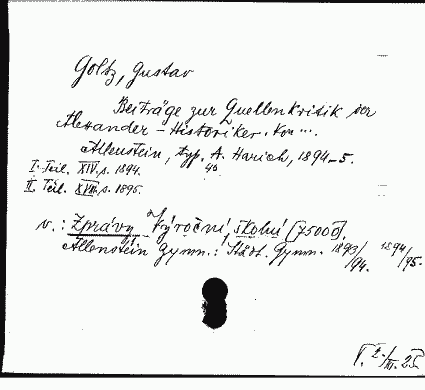 Goltz, Gustav
Beiträge zur Quellenkritik der
Alexander-Historiker. Von ....
Allenstein, typ. A. Harich, 1894-5.
I. Teil. XIV, s. 1894. 4o.
II. Teil. s. 1895.
v.: Zprávy Výroční, školní [75000].
Allenstein Gymn.: Städt. Gymn. 1893/94. 1894/95.